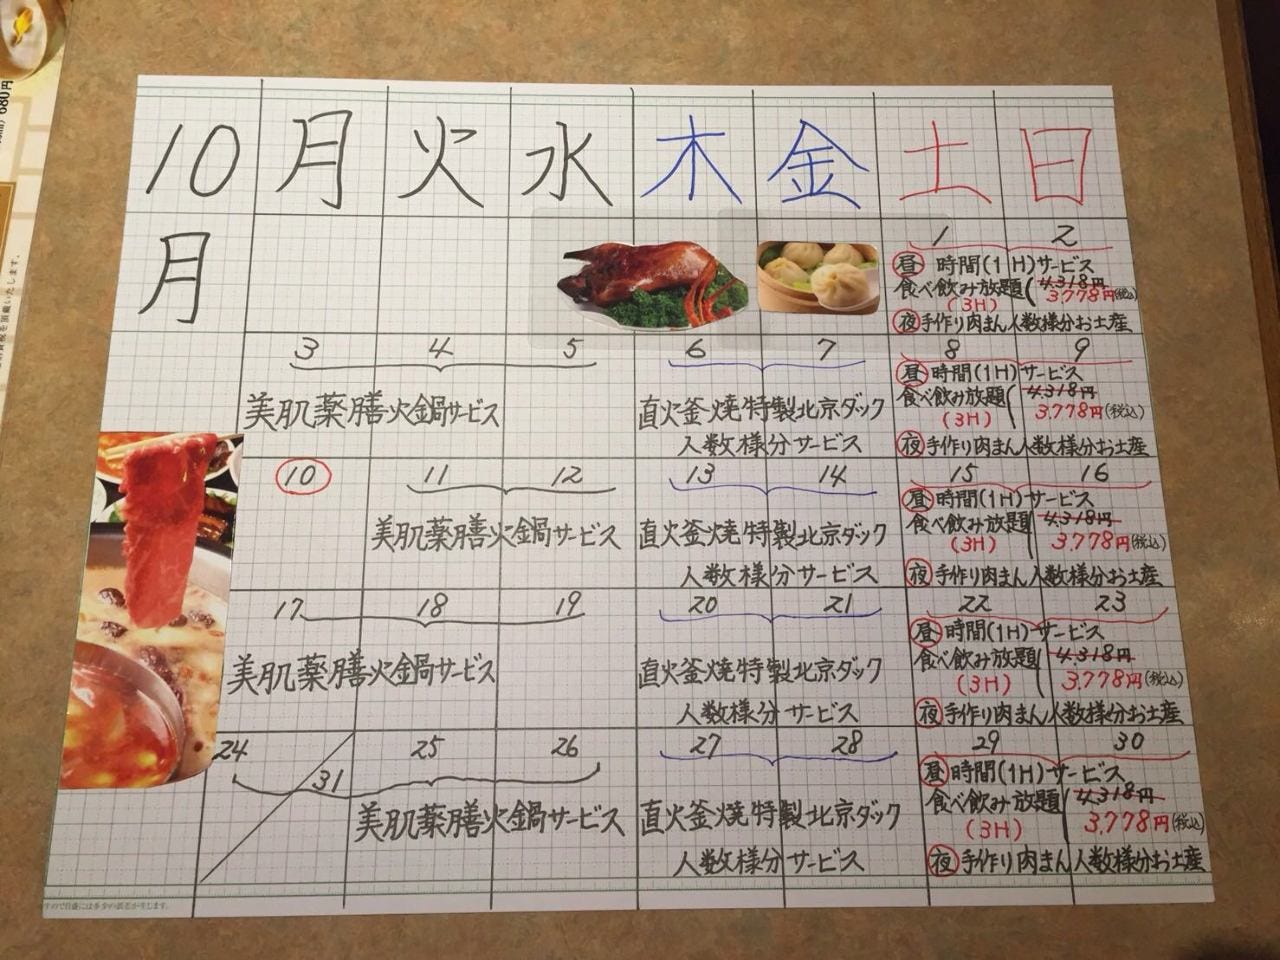 680円
10月
月 火 水 木 金 土 日
1 2
昼 時間(1H)サービス
食べ飲み放題(3H) 4,318円 3,778円(税込)
夜 手作り肉まん人数様分お土産
3 4 5 6 7 8 9
美肌薬膳火鍋サービス
直火釜焼特製北京ダック
人数様分サービス
昼 時間(1H)サービス
食べ飲み放題(3H) 4,318円 3,778円(税込)
夜 手作り肉まん人数様分お土産
10 11 12 13 14 15 16
美肌薬膳火鍋サービス
直火釜焼特製北京ダック
人数様分サービス
昼 時間(1H)サービス
食べ飲み放題(3H) 4,318円 3,778円(税込)
夜 手作り肉まん人数様分お土産
17 18 19 20 21 22 23
美肌薬膳火鍋サービス
直火釜焼特製北京ダック
人数様分サービス
昼 時間(1H)サービス
食べ飲み放題(3H) 4,318円 3,778円(税込)
夜 手作り肉まん人数様分お土産
24 31 25 26 27 28 29 30
美肌薬膳火鍋サービス
直火釜焼特製北京ダック
人数様分サービス
昼 時間(1H)サービス
食べ飲み放題(3H) 4,318円 3,778円(税込)
夜 手作り肉まん人数様分お土産